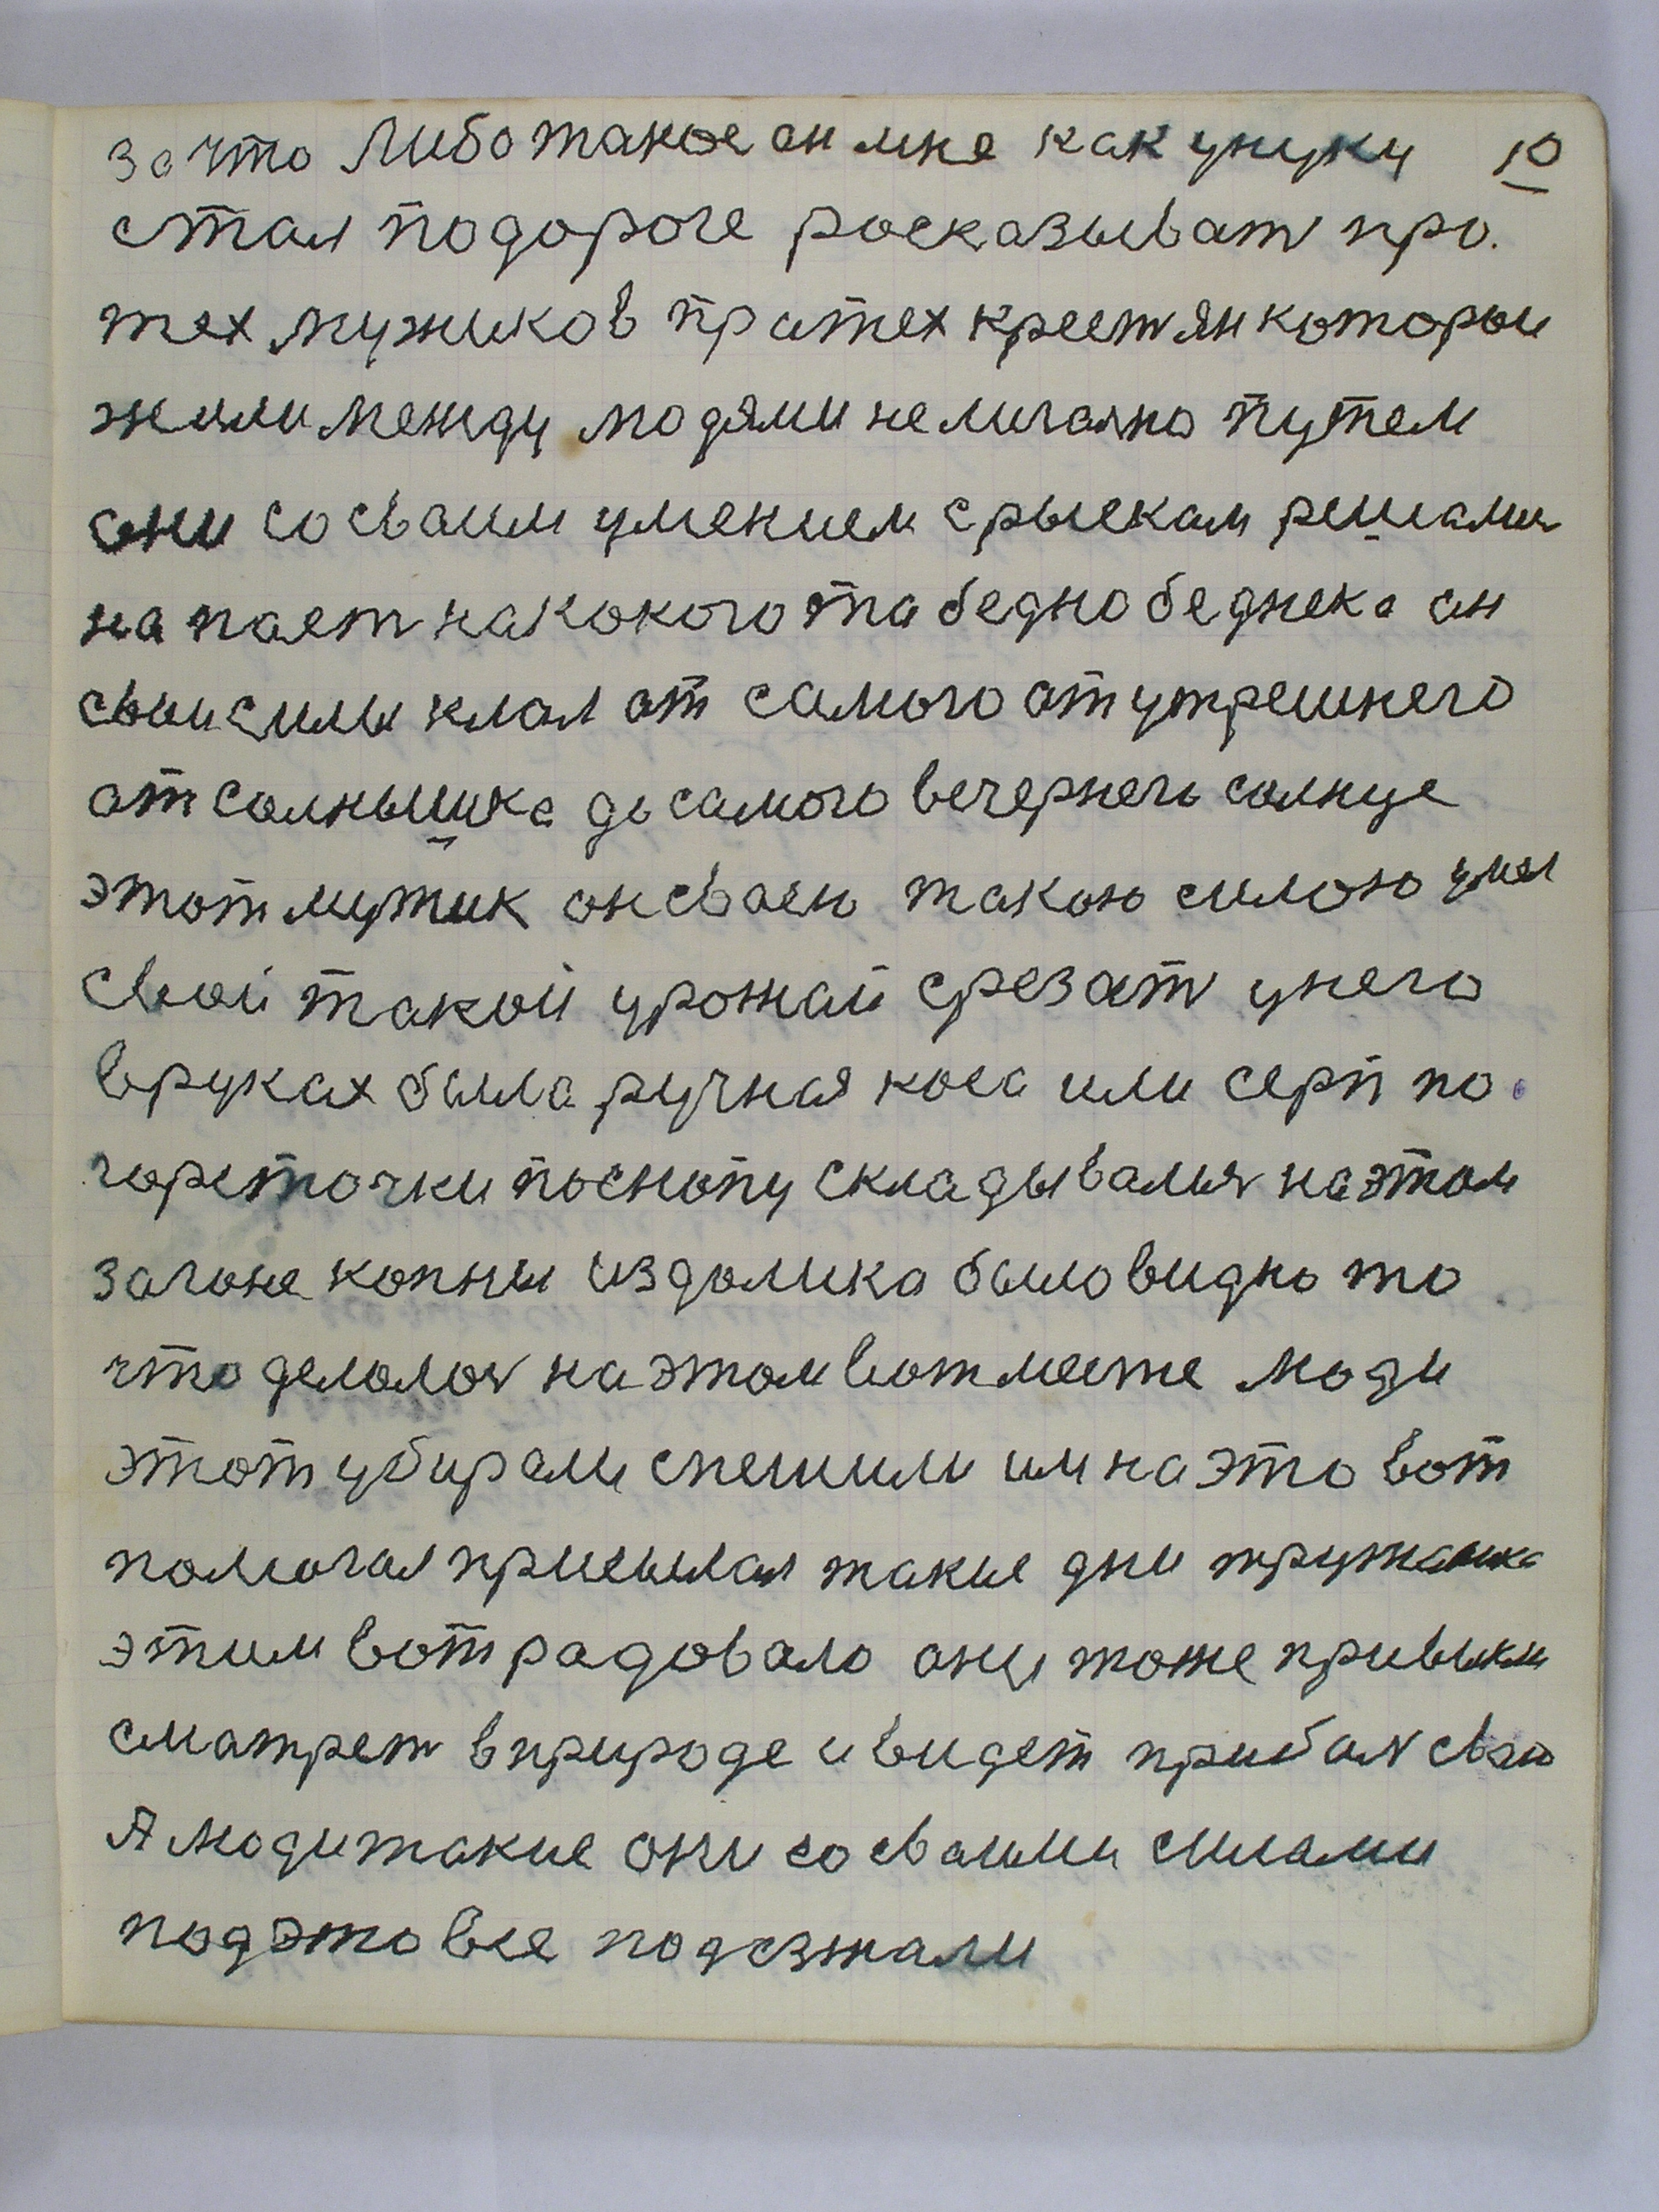 за что либо такое он мне как унуку 10
стал подороге росказыват про.
тех мужиков пратех крестян которыи
жили между людями нелигално путем
они со сваим умением срыскам решалис
на пает накокого та бедно беднека он
сваи силы клал от самого атутрешнего
от солнышка до самого вечернего солнце
этот мужик он сваею такою силою умел
свой такой урожай срезат унего
вруках была ручная коса или серп по
горсточки поснопу складывалис наэтом
загоне копны издалика было видно то
что делолос на этом вот месте люди
этот убирали спешили им на это вот
помогал присылал такие дни труженика
этим вот радовало они тоже привыкли
сматрет вприроде и видет прибал сваю
А люди такие они со сваими силами
под это все подезжали